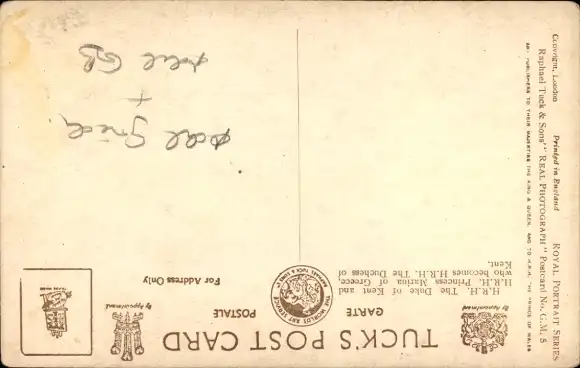 TUCK'S POST CARD
By Appointment
By Appointment
CARTE
POSTALE
H.R.H. The Duke of Kent and
H.R.H. Princess Marina of Greece,
who becomes H.R.H. The Duchess of
Kent.
For Address Only
TRADE MARK
THE WORLD'S ART SERVICE
RAPHAEL TUCK & SONS LTD
Copyright, London Printed in England ROYAL PORTRAIT SERIES
Raphael Tuck & Sons' "REAL PHOTOGRAPH" Postcard No. C.M. 5
ART PUBLISHERS TO THEIR MAJESTIES THE KING & QUEEN, AND TO H.R.H. THE PRINCE OF WALES
+